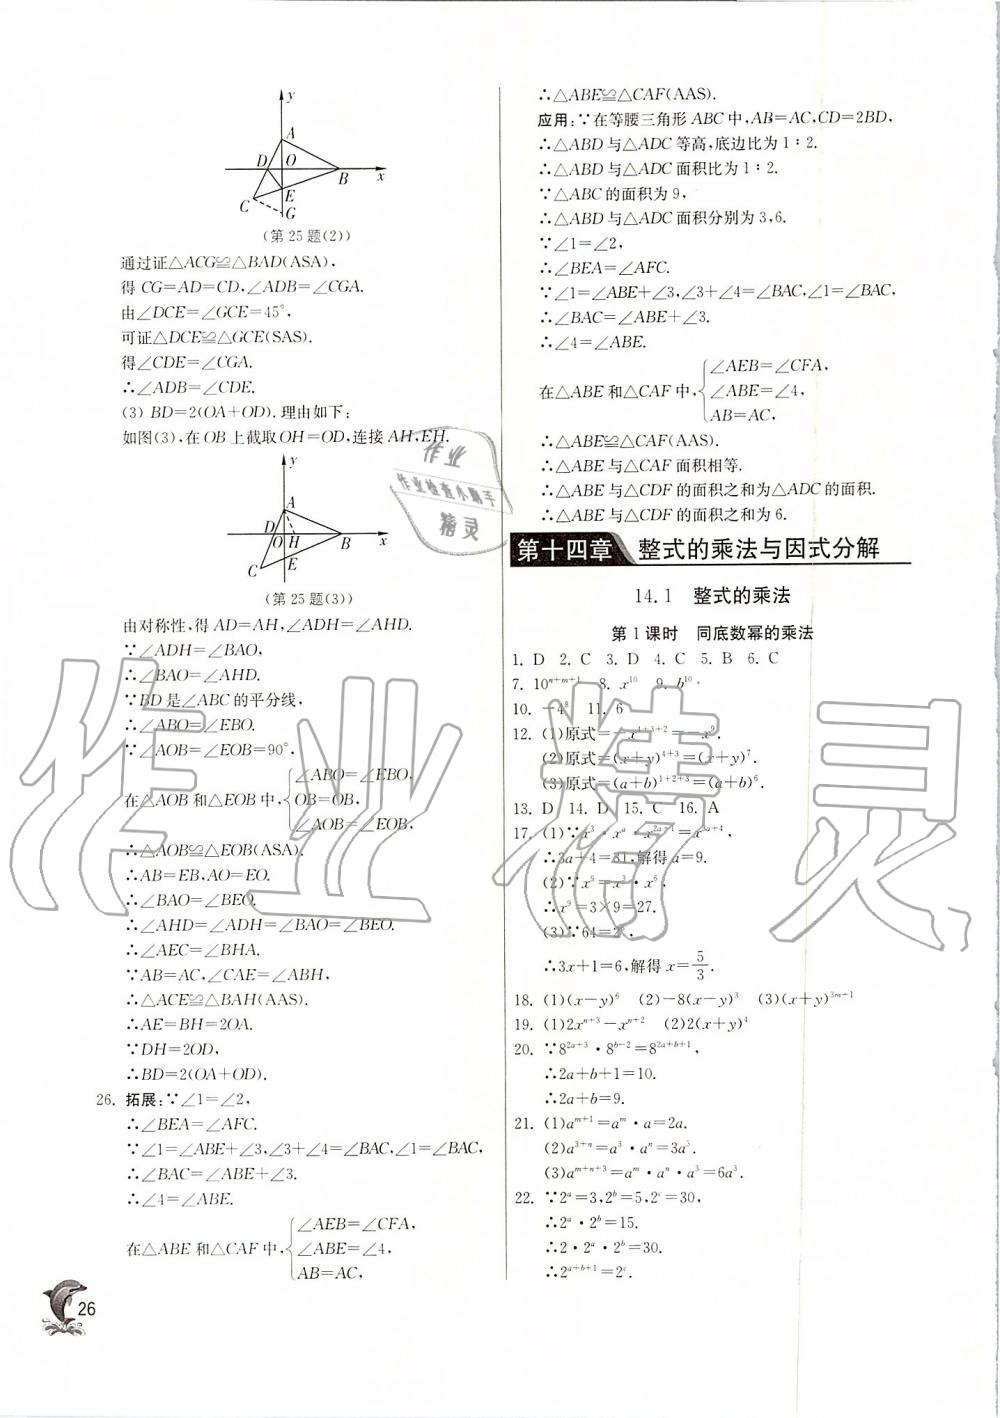 y
A
D
O
B
x
E
C
G
(第25题(2))
通过证△ACG≌△BAD(ASA),
得 CG=AD=CD,∠ADB=∠CGA.
由∠DCE=∠GCE=45°,
可证△DCE≌△GCE(SAS).
得∠CDE=∠CGA.
∴∠ADB=∠CDE.
(3) BD=2(OA+OD).理由如下:
如图(3),在OB上截取OH=OD,连接AH,EH.
y
A
D
O
H
B
x
E
C
(第25题(3))
由对称性,得AD=AH,∠ADH=∠AHD.
∵∠ADH=∠BAO,
∴∠BAO=∠AHD.
∵BD是∠ABC的平分线,
∴∠ABO=∠EBO.
∵∠AOB=∠EOB=90°,
在△AOB和△EOB中,{∠ABO=∠EBO,
OB=OB,
∠AOB=∠EOB,
∴△AOB≌△EOB(ASA).
∴AB=EB,AO=EO.
∴∠BAO=∠BEO.
∴∠AHD=∠ADH=∠BAO=∠BEO.
∴∠AEC=∠BHA.
∵AB=AC,∠CAE=∠ABH,
∴△ACE≌△BAH(AAS).
∴AE=BH=2OA.
∵DH=2OD,
∴BD=2(OA+OD).
26. 拓展:∵∠1=∠2,
∴∠BEA=∠AFC.
∵∠1=∠ABE+∠3,∠3+∠4=∠BAC,∠1=∠BAC,
∴∠BAC=∠ABE+∠3.
∴∠4=∠ABE.
在△ABE和△CAF中,{∠AEB=∠CFA,
∠ABE=∠4,
AB=AC,
26
∴△ABE≌△CAF(AAS).
应用:∵在等腰三角形ABC中,AB=AC,CD=2BD,
∴△ABD与△ADC等高,底边比为1∶2.
∴△ABD与△ADC面积比为1∶2.
∵△ABC的面积为9,
∴△ABD与△ADC面积分别为3,6.
∵∠1=∠2,
∴∠BEA=∠AFC.
∵∠1=∠ABE+∠3,∠3+∠4=∠BAC,∠1=∠BAC,
∴∠BAC=∠ABE+∠3.
∴∠4=∠ABE.
在△ABE和△CAF中,{∠AEB=∠CFA,
∠ABE=∠4,
AB=AC,
∴△ABE≌△CAF(AAS).
∴△ABE与△CAF面积相等.
∴△ABE与△CDF的面积之和为△ADC的面积.
∴△ABE与△CDF的面积之和为6.
第十四章 整式的乘法与因式分解
14.1 整式的乘法
第1课时 同底数幂的乘法
1. D 2. C 3. D 4. C 5. B 6. C
7. 10ⁿ⁺ᵐ⁺¹ 8. x¹⁰ 9. b¹⁰
10. −4⁸ 11. 6
12. (1)原式=−x¹⁺³⁺²=−x⁹.
(2)原式=(x+y)⁴⁺³=(x+y)⁷.
(3)原式=(a+b)¹⁺²⁺³=(a+b)⁶.
13. D 14. D 15. C 16. A
17. (1)∵x³·xᵃ·x²ᵃ⁺¹=x³ᵃ⁺⁴,
∴3a+4=31,解得a=9.
(2)∵x⁹=x³·x⁶,
∴x⁹=3×9=27.
(3)∵64=2⁶,
∴3x+1=6,解得x=5/3.
18. (1)(x−y)⁶ (2)−8(x−y)³ (3)(x+y)³ᵐ⁺¹
19. (1)2xⁿ⁺³−xⁿ⁺² (2)2(x+y)⁴
20. ∵8²ᵃ⁺³·8ᵇ⁻²=8²ᵃ⁺ᵇ⁺¹,
∴2a+b+1=10.
∴2a+b=9.
21. (1)aᵐ⁺¹=aᵐ·a=2a.
(2)a³⁺ⁿ=a³·aⁿ=3a³.
(3)aᵐ⁺ⁿ⁺³=aᵐ·aⁿ·a³=6a³.
22. ∵2ᵃ=3,2ᵇ=5,2ᶜ=30,
∴2ᵃ·2ᵇ=15.
∴2·2ᵃ·2ᵇ=30.
∴2ᵃ⁺ᵇ⁺¹=2ᶜ.
作业
作业检查小助手
精灵
作业精灵